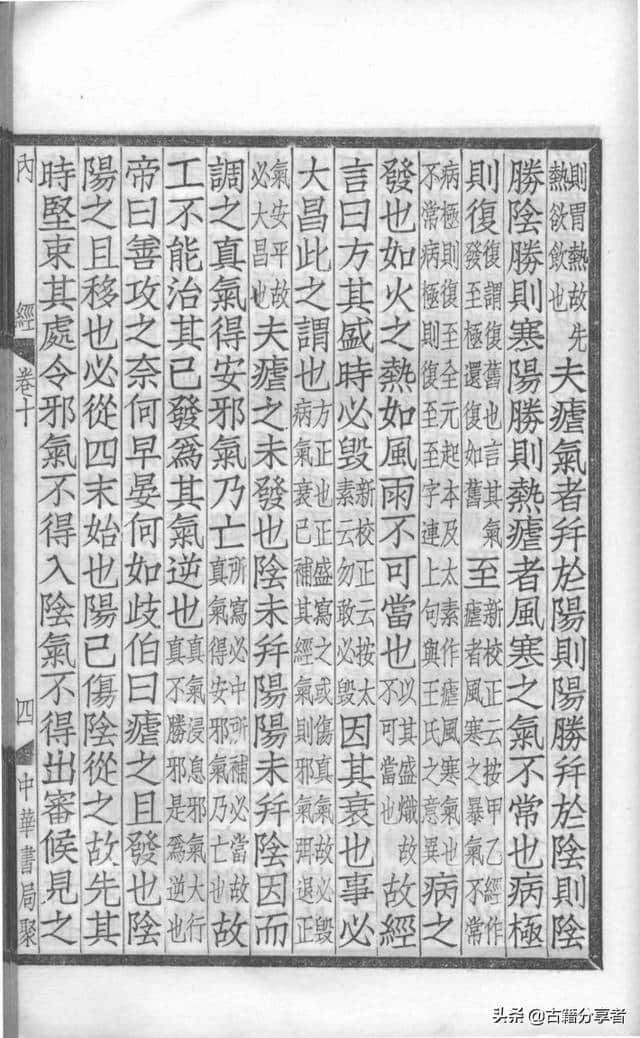 則胃熱故先
熱欲飲也
夫瘧氣者幷於陽則陽勝幷於陰則陰
勝陰勝則寒陽勝則熱瘧者風寒之氣不常也病極
則復
復謂復舊也言其氣
發至極還復如舊
至
新校正云按甲乙經作
瘧者風寒之暴氣不常
病極則復至全元起本及太素作瘧風寒氣也
不常病極則復至至字連上句與王氏之意異
病之
發也如火之熱如風雨不可當也
以其盛熾故
不可當也
故經
言曰方其盛時必毀
新校正云按太
素云勿敢必毀
因其衰也事必
大昌此之謂也
方正也正盛寫之或傷真氣故必毀
病氣衰已補其經氣則邪氣弭退正
氣安平故
必大昌也
夫瘧之未發也陰未幷陽陽未幷陰因而
調之真氣得安邪氣乃亡
所寫必中所補必當故
真氣得安邪氣乃亡也
故
工不能治其已發為其氣逆也
真氣浸息邪氣大行
真不勝邪是為逆也
帝曰善攻之奈何早晏何如歧伯曰瘧之且發也陰
陽之且移也必從四末始也陽已傷陰從之故先其
時堅束其處令邪氣不得入陰氣不得出審候見之
內 經 卷十 四 中華書局聚
头条 @古籍分享者